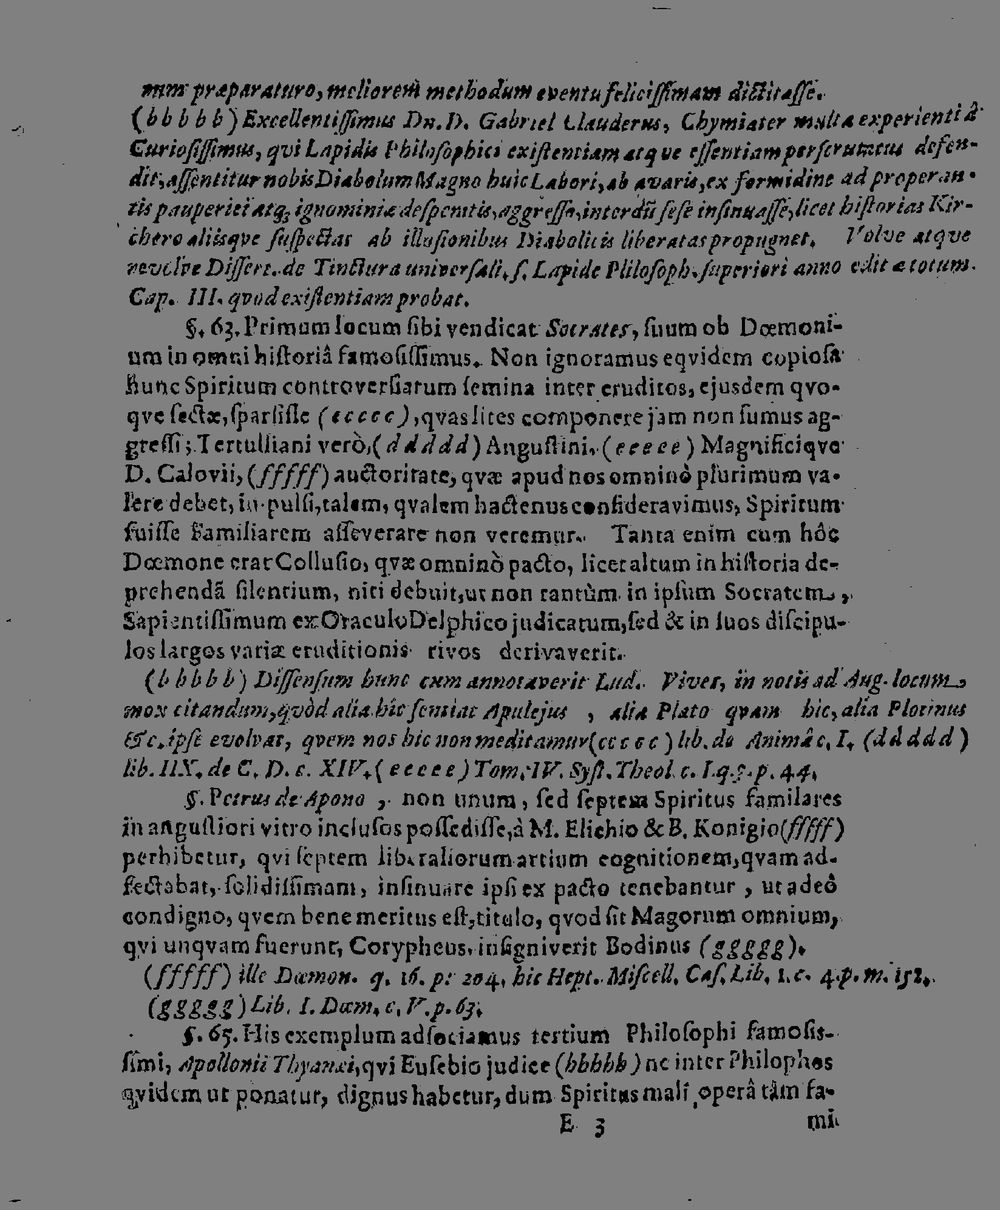 mum præparaturo, meliorem methodum eventu feliciſſimam dictitaſſe.
(b b b b b) Excellentiſſimus Dn. D. Gabriel Clauderus, Chymiater multa experientiâ
Curioſiſſimus, qui Lapidis Philoſophici exiſtentiam atque eſſentiam perſcrutatus defen-
dit, aſſentitur nobis Diabolum Magno huic Labori, ab avaris, ex formidine ad properan-
tis pauperiei atq; ignominiæ deſperatis, aggreſſo, interdū ſeſe inſinuaſſe, licet hiſtorias Kir-
chero aliisqve ſuſpectas ab illuſionibus Diabolicis liberatas propugnet. Volve atque
revolve Diſſert. de Tinctura univerſali, ſ. Lapide Philoſoph. ſuperiori anno edit a totum.
Cap. III. qvod exiſtentiam probat.
§. 63. Primum locum ſibi vendicat Socrates, ſuum ob Dœmoni-
um in omni hiſtoriâ famoſiſſimus. Non ignoramus eqvidem copioſa
hunc Spiritum controverſiarum ſemina inter eruditos, ejusdem qvo-
qve ſectæ, ſparſiſſe (c c c c c), qvas lites componere jam non ſumus ag-
greſſi; Tertulliani verò, (d d d d d) Auguſtini, (e e e e e) Magnificique
D. Calovii, (fffff) auctoritate, qvæ apud nos omninò plurimum va-
lere debet, in-pulſi, talem, qvalem hactenus conſideravimus, Spiritum
fuiſſe Familiarem aſſeverare non veremur. Tanta enim cum hôc
Dœmone erat Colluſio, qvæ omninò pacto, licet altum in hiſtoria de-
prehendā ſilentium, niti debuit, ut non tantùm in ipſum Socratem,
Sapientiſſimum ex Oraculo Delphico judicatum, ſed & in ſuos diſcipu-
los largos variæ eruditionis rivos derivaverit.
(b b b b b) Diſſenſum hunc cum annotaverit Lud. Vives, in notis ad Aug. locum
mox citandum, qvòd alia hic ſentiat Apulejus, alia Plato qvam hic, alia Plotinus
&c. ipſe evolvat, qvem nos hic non meditamur (c c c c c) lib. de Animâ c. I. (d d d d d)
lib. IIX. de C. D. c. XIV. (e e e e e) Tom. IV. Syſt. Theol. c. I. q. 5. p. 44.
§. Petrus de Apono, non unum, ſed ſeptem Spiritus familares
in anguſtiori vitro incluſos poſſediſſe, à M. Elichio & B. Konigio (fffff)
perhibetur, qvi ſeptem liberaliorum artium cognitionem, qvam ad-
fectabat, ſolidiſſimam, inſinuare ipſi ex pacto tenebantur, ut adeò
condigno, qvem bene meritus eſt, titulo, qvod ſit Magorum omnium,
qvi unqvam fuerunt, Corypheus, inſigniverit Bodinus (ggggg).
(fffff) ille Dœmon. q. 16. p. 204. hic Hept. Miſcell. Caſ. Lib. 1. c. 4. p. m. 152.
(ggggg) Lib. I. Dœm. c. V. p. 63.
§. 65. His exemplum adſociamus tertium Philoſophi famoſis-
ſimi, Apollonii Thyanæi, qvi Euſebio judice (hhhhh) ne inter Philophos
qvidem ut ponatur, dignus habetur, dum Spiritus mali operâ tàm fa-
E 3 mi-